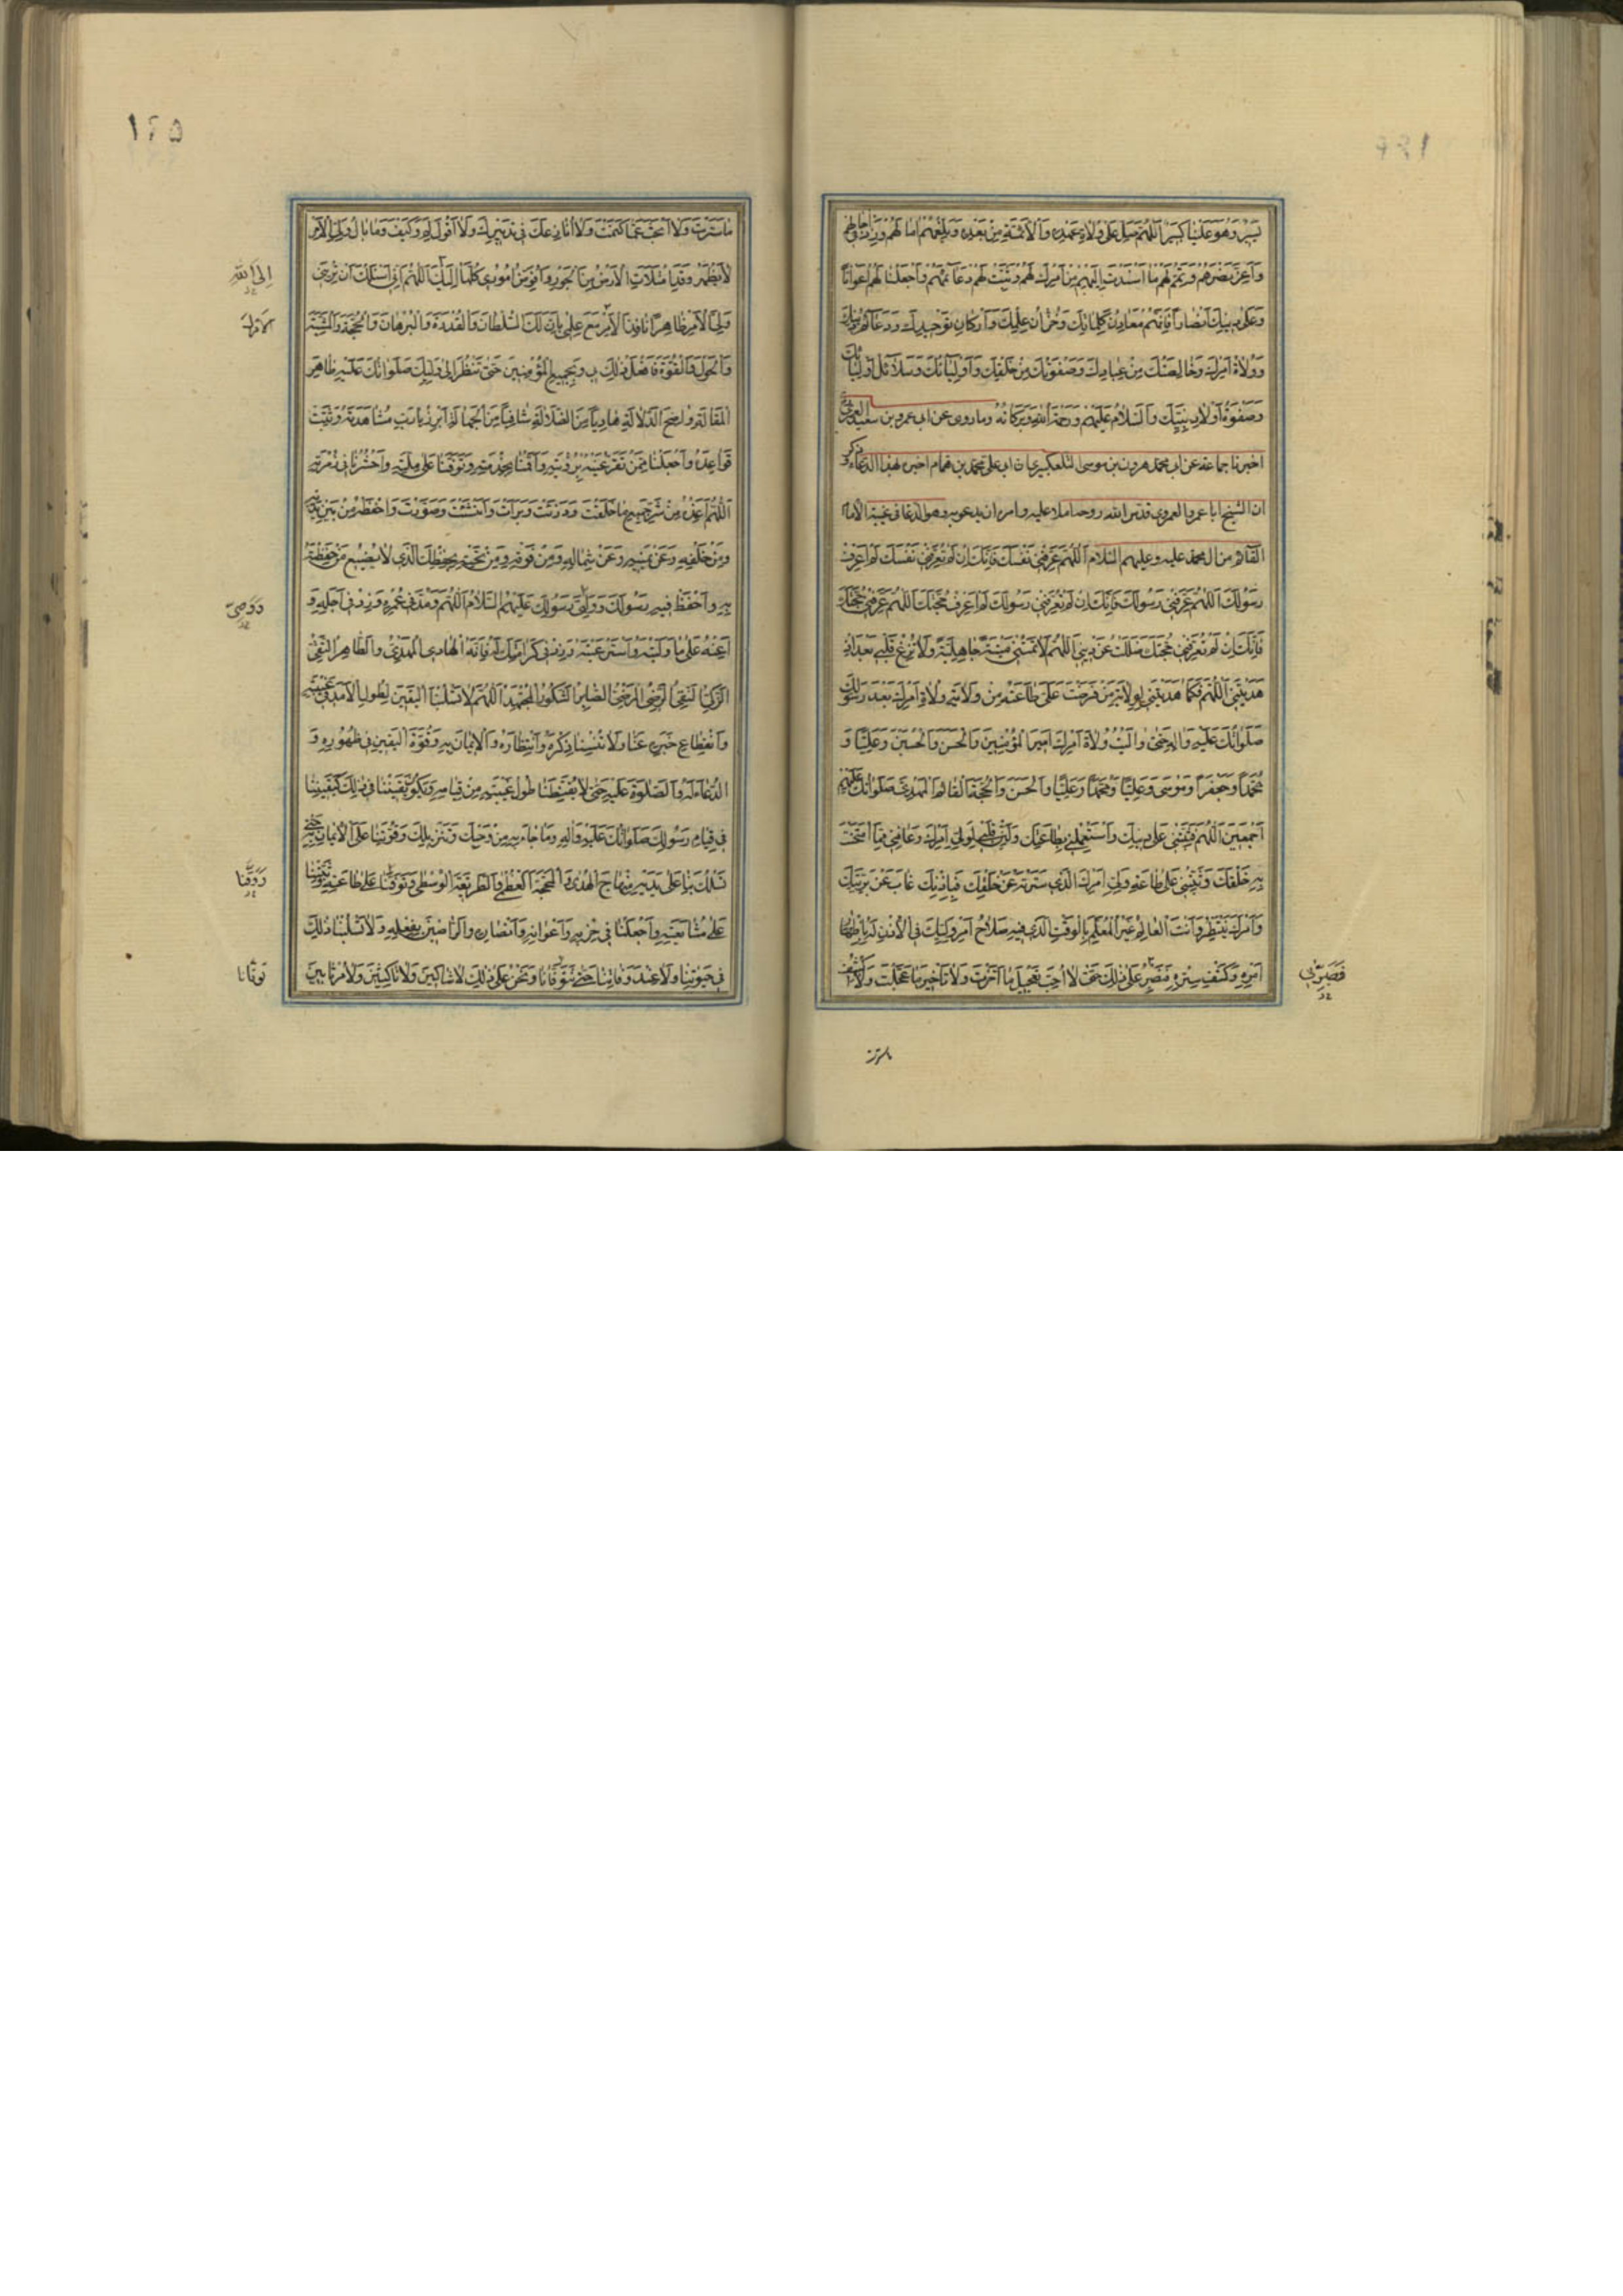 يَسِيرٌ وَهُوَ عَلَيْنَا كَبِيرٌ اَللّٰهُمَّ صَلِّ عَلٰى وُلاةِ عَهْدِهِ وَالْأَئِمَّةِ مِنْ بَعْدِهِ وَبَلِّغْهُمْ اٰمَالَهُمْ وَزِدْ فِي اٰجَالِهِمْ
وَاَعِزَّ نَصْرَهُمْ وَتَمِّمْ لَهُمْ مَا اَسْنَدْتَ اِلَيْهِمْ مِنْ اَمْرِكَ لَهُمْ وَثَبِّتْ لَهُمْ دَعَائِمَهُمْ وَاجْعَلْنَا لَهُمْ اَعْوَانًا
وَعَلٰى دِينِكَ اَنْصَارًا فَاِنَّهُمْ مَعَادِنُ كَلِمَاتِكَ وَخُزَّانُ عِلْمِكَ وَاَرْكَانُ تَوْحِيدِكَ وَدَعَائِمُ دِينِكَ
وَوُلَاةُ اَمْرِكَ وَخَالِصَتُكَ مِنْ عِبَادِكَ وَصَفْوَتُكَ مِنْ خَلْقِكَ وَاَوْلِيَائُكَ وَسَلَائِلُ اَوْلِيَائِكَ
وَصَفْوَةُ اَوْلَادِ نَبِيِّكَ وَالسَّلَامُ عَلَيْهِمْ وَرَحْمَةُ اللّٰهِ وَبَرَكَاتُهُ وما روى عن ابى عمرو بن سعيد العمرى
اخبرنا جماعة عن ابى محمد هرون بن موسى التلعكبرى ان ابا على محمد بن همام اخبره بهذا الدعاء وذكر
ان الشيخ ابا عمرو العمروى قدس الله روحه املاه عليه وامره ان يدعو به وهو الدعا فى غيبة الامام
القائم من ال محمد عليه وعليهم السلام اَللّٰهُمَّ عَرِّفْنِي نَفْسَكَ فَاِنَّكَ اِنْ لَمْ تُعَرِّفْنِي نَفْسَكَ لَمْ اَعْرِفْ
رَسُولَكَ اَللّٰهُمَّ عَرِّفْنِي رَسُولَكَ فَاِنَّكَ اِنْ لَمْ تُعَرِّفْنِي رَسُولَكَ لَمْ اَعْرِفْ حُجَّتَكَ اَللّٰهُمَّ عَرِّفْنِي حُجَّتَكَ
فَاِنَّكَ اِنْ لَمْ تُعَرِّفْنِي حُجَّتَكَ ضَلَلْتُ عَنْ دِينِي اَللّٰهُمَّ لَا تُمِتْنِي مِيتَةً جَاهِلِيَّةً وَلَا تُزِغْ قَلْبِي بَعْدَ اِذْ
هَدَيْتَنِي اَللّٰهُمَّ فَكَمَا هَدَيْتَنِي بِوِلَايَةِ مَنْ فَرَضْتَ عَلَيَّ طَاعَتَهُ مِنْ وَلَايَةِ وُلَاةِ اَمْرِكَ بَعْدَ رَسُولِكَ
صَلَوَاتُكَ عَلَيْهِ وَاٰلِهِ حَتّٰى وَالَيْتُ وُلَاةَ اَمْرِكَ اَمِيرَ الْمُؤْمِنِينَ وَالْحَسَنَ وَالْحُسَيْنَ وَعَلِيًّا وَ
مُحَمَّدًا وَجَعْفَرًا وَمُوسٰى وَعَلِيًّا وَمُحَمَّدًا وَعَلِيًّا وَالْحَسَنَ وَالْحُجَّةَ الْقَائِمَ الْمَهْدِيَّ صَلَوَاتُكَ عَلَيْهِمْ
اَجْمَعِينَ اَللّٰهُمَّ فَثَبِّتْنِي عَلٰى دِينِكَ وَاسْتَعْمِلْنِي بِطَاعَتِكَ وَلَيِّنْ قَلْبِي لِوَلِيِّ اَمْرِكَ وَعَافِنِي مِمَّا امْتَحَنْتَ
بِهِ خَلْقَكَ وَثَبِّتْنِي عَلٰى طَاعَةِ وَلِيِّ اَمْرِكَ الَّذِي سَتَرْتَهُ عَنْ خَلْقِكَ فَبِاِذْنِكَ غَابَ عَنْ بَرِيَّتِكَ
وَاَمْرَكَ يَنْتَظِرُ وَاَنْتَ الْعَالِمُ غَيْرُ الْمُعَلَّمِ بِالْوَقْتِ الَّذِي فِيهِ صَلَاحُ اَمْرِ وَلِيِّكَ فِي الْاِذْنِ لَهُ بِاِظْهَارِ
اَمْرِهِ وَكَشْفِ سِتْرِهِ فَصَبِّرْنِي عَلٰى ذٰلِكَ حَتّٰى لَا اُحِبَّ تَعْجِيلَ مَا اَخَّرْتَ وَلَا تَأْخِيرَ مَا عَجَّلْتَ وَلَا اَكْشِفَ
فَصَبِّرْنِي
ما سترت
١٢٥
مَا سَتَرْتَ وَلَا اَبْحَثَ عَمَّا كَتَمْتَ وَلَا اُنَازِعَكَ فِي تَدْبِيرِكَ وَلَا اَقُولَ لِمَ وَكَيْفَ وَمَا بَالُ وَلِيِّ الْاَمْرِ
لَا يَظْهَرُ وَقَدِ امْتَلَأَتِ الْاَرْضُ مِنَ الْجَوْرِ وَاُفَوِّضُ اُمُورِي كُلَّهَا اِلَيْكَ اَللّٰهُمَّ اِنِّي اَسْئَلُكَ اَنْ تُرِيَنِي
اِلَى اللّٰهِ
وَلِيَّ الْاَمْرِ ظَاهِرًا نَافِذَ الْاَمْرِ مَعَ عِلْمِي بِاَنَّ لَكَ السُّلْطَانَ وَالْقُدْرَةَ وَالْبُرْهَانَ وَالْحُجَّةَ وَالْمَشِيَّةَ
وَالْحَوْلَ وَالْقُوَّةَ فَافْعَلْ ذٰلِكَ بِي وَبِجَمِيعِ الْمُؤْمِنِينَ حَتّٰى نَنْظُرَ اِلٰى وَلِيِّكَ صَلَوَاتُكَ عَلَيْهِ ظَاهِرَ
الْمَقَالَةِ وَاضِحَ الدَّلَالَةِ هَادِيًا مِنَ الضَّلَالَةِ شَافِيًا مِنَ الْجَهَالَةِ اَبْرِزْ يَا رَبِّ مُشَاهَدَتَهُ وَثَبِّتْ
قَوَاعِدَهُ وَاجْعَلْنَا مِمَّنْ تَقَرُّ عَيْنُهُ بِرُؤْيَتِهِ وَاَقِمْنَا بِخِدْمَتِهِ وَتَوَفَّنَا عَلٰى مِلَّتِهِ وَاحْشُرْنَا فِي زُمْرَتِهِ
اَللّٰهُمَّ اَعِذْهُ مِنْ شَرِّ جَمِيعِ مَا خَلَقْتَ وَذَرَئْتَ وَبَرَأْتَ وَاَنْشَئْتَ وَصَوَّرْتَ وَاحْفَظْهُ مِنْ بَيْنِ يَدَيْهِ
وَمِنْ خَلْفِهِ وَعَنْ يَمِينِهِ وَعَنْ شِمَالِهِ وَمِنْ فَوْقِهِ وَمِنْ تَحْتِهِ بِحِفْظِكَ الَّذِي لَا يَضِيعُ مَنْ حَفِظْتَهُ
بِهِ وَاحْفَظْ فِيهِ رَسُولَكَ وَوَصِيَّ رَسُولِكَ عَلَيْهِمُ السَّلَامُ اَللّٰهُمَّ وَمُدَّ فِي عُمُرِهِ وَزِدْ فِي اَجَلِهِ وَ
وَوَصِيَّ
اَعِنْهُ عَلٰى مَا وَلَّيْتَهُ وَاسْتَرْعَيْتَهُ وَزِدْ فِي كَرَامَتِكَ لَهُ فَاِنَّهُ الْهَادِي الْمَهْدِيُّ وَالطَّاهِرُ التَّقِيُّ
الزَّكِيُّ النَّقِيُّ الرَّضِيُّ الْمَرْضِيُّ الصَّابِرُ الشَّكُورُ الْمُجْتَهِدُ اَللّٰهُمَّ لَا تَسْلُبْنَا الْيَقِينَ لِطُولِ الْاَمَدِ فِي غَيْبَتِهِ
وَانْقِطَاعِ خَبَرِهِ عَنَّا وَلَا تُنْسِنَا ذِكْرَهُ وَانْتِظَارَهُ وَالْاِيمَانَ بِهِ وَقُوَّةَ الْيَقِينِ فِي ظُهُورِهِ وَ
الدُّعَاءَ لَهُ وَالصَّلٰوةَ عَلَيْهِ حَتّٰى لَا يُقَنِّطَنَا طُولُ غَيْبَتِهِ مِنْ قِيَامِهِ وَيَكُونَ يَقِينُنَا فِي ذٰلِكَ كَيَقِينِنَا
فِي قِيَامِ رَسُولِكَ صَلَوَاتُكَ عَلَيْهِ وَاٰلِهِ وَمَا جَاءَ بِهِ مِنْ وَحْيِكَ وَتَنْزِيلِكَ وَقَوِّ قُلُوبَنَا عَلَى الْاِيمَانِ بِهِ حَتّٰى
تَسْلُكَ بِنَا عَلٰى يَدَيْهِ مِنْهَاجَ الْهُدٰى وَالْمَحَجَّةَ الْعُظْمٰى وَالطَّرِيقَةَ الْوُسْطٰى وَقَوِّنَا عَلٰى طَاعَتِهِ وَثَبِّتْنَا
وَقَوِّنَا
عَلٰى مُشَايَعَتِهِ وَاجْعَلْنَا فِي حِزْبِهِ وَاَعْوَانِهِ وَاَنْصَارِهِ وَالرَّاضِينَ بِفِعْلِهِ وَلَا تَسْلُبْنَا ذٰلِكَ
فِي حَيٰوتِنَا وَلَا عِنْدَ وَفَاتِنَا حَتّٰى تَتَوَفَّانَا وَنَحْنُ عَلٰى ذٰلِكَ لَا شَاكِّينَ وَلَا نَاكِثِينَ وَلَا مُرْتَابِينَ
تَوَفَّانَا